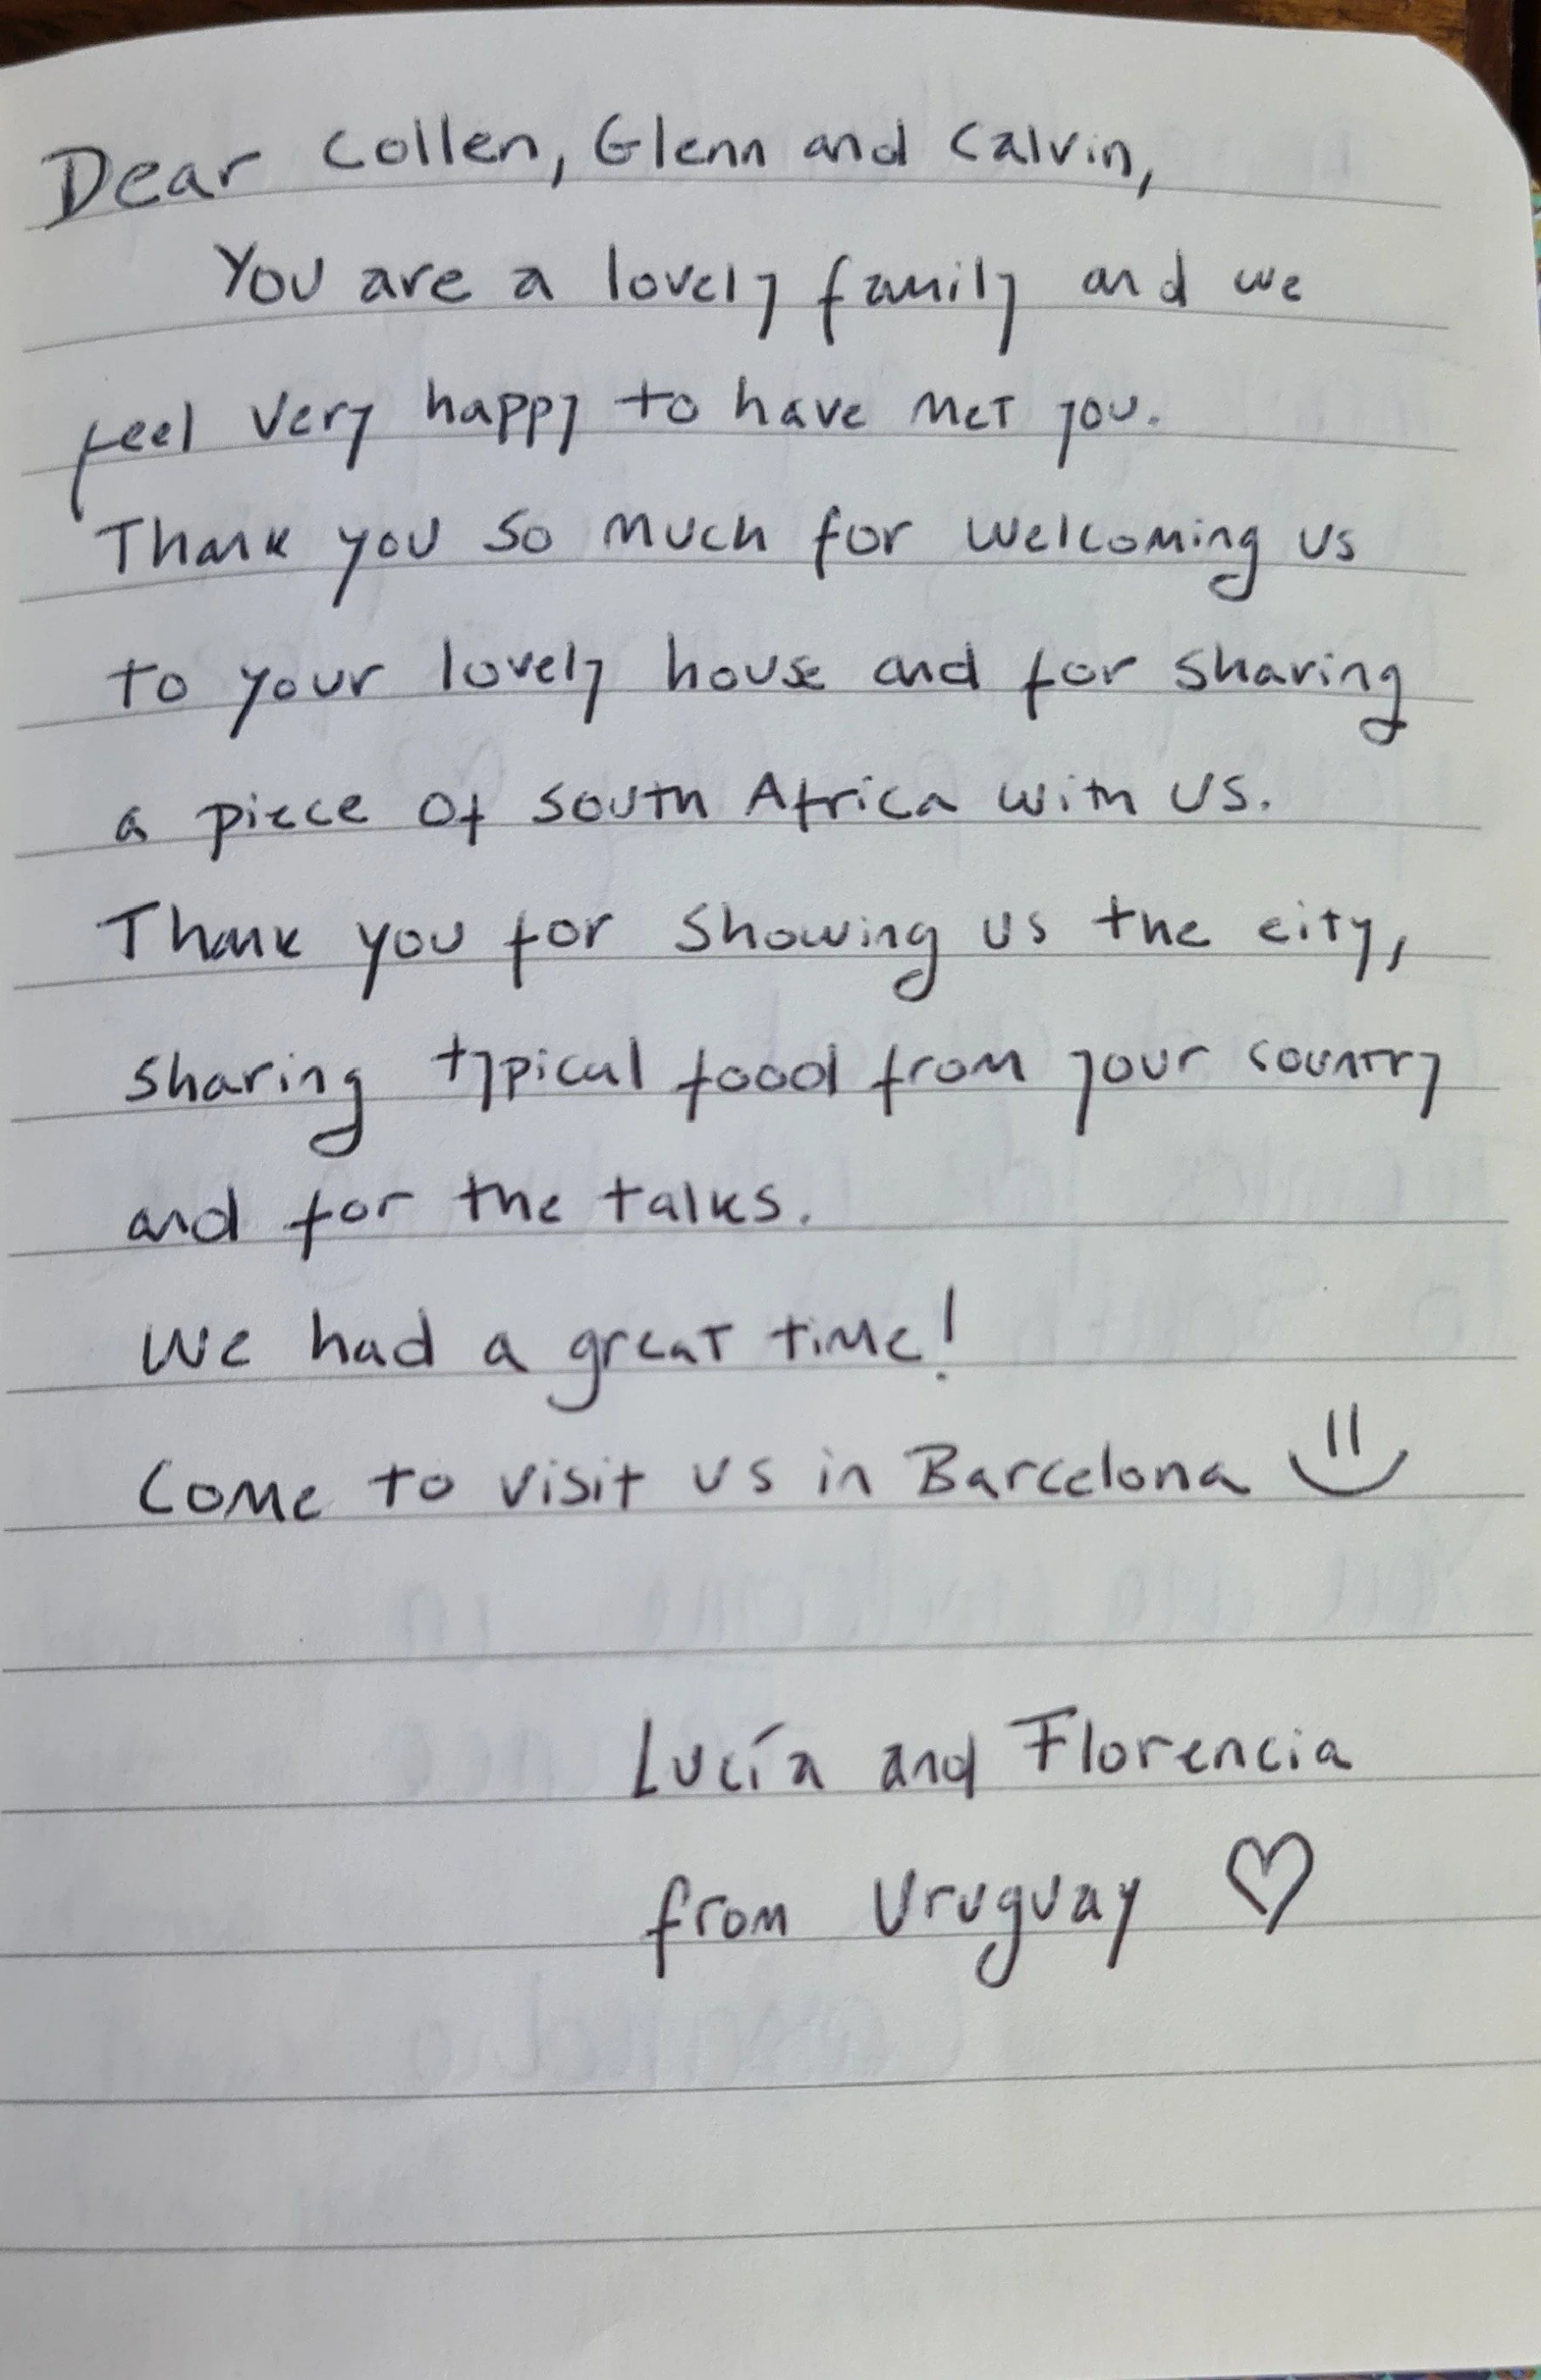 Dear Collen, Glenn and Calvin,
You are a lovely family and we
feel very happy to have met you.
Thank you so much for welcoming us
to your lovely house and for sharing
a piece of South Africa with us.
Thank you for showing us the city,
sharing typical food from your country
and for the talks.
We had a great time!
Come to visit us in Barcelona
Lucía and Florencia
from Uruguay ♡